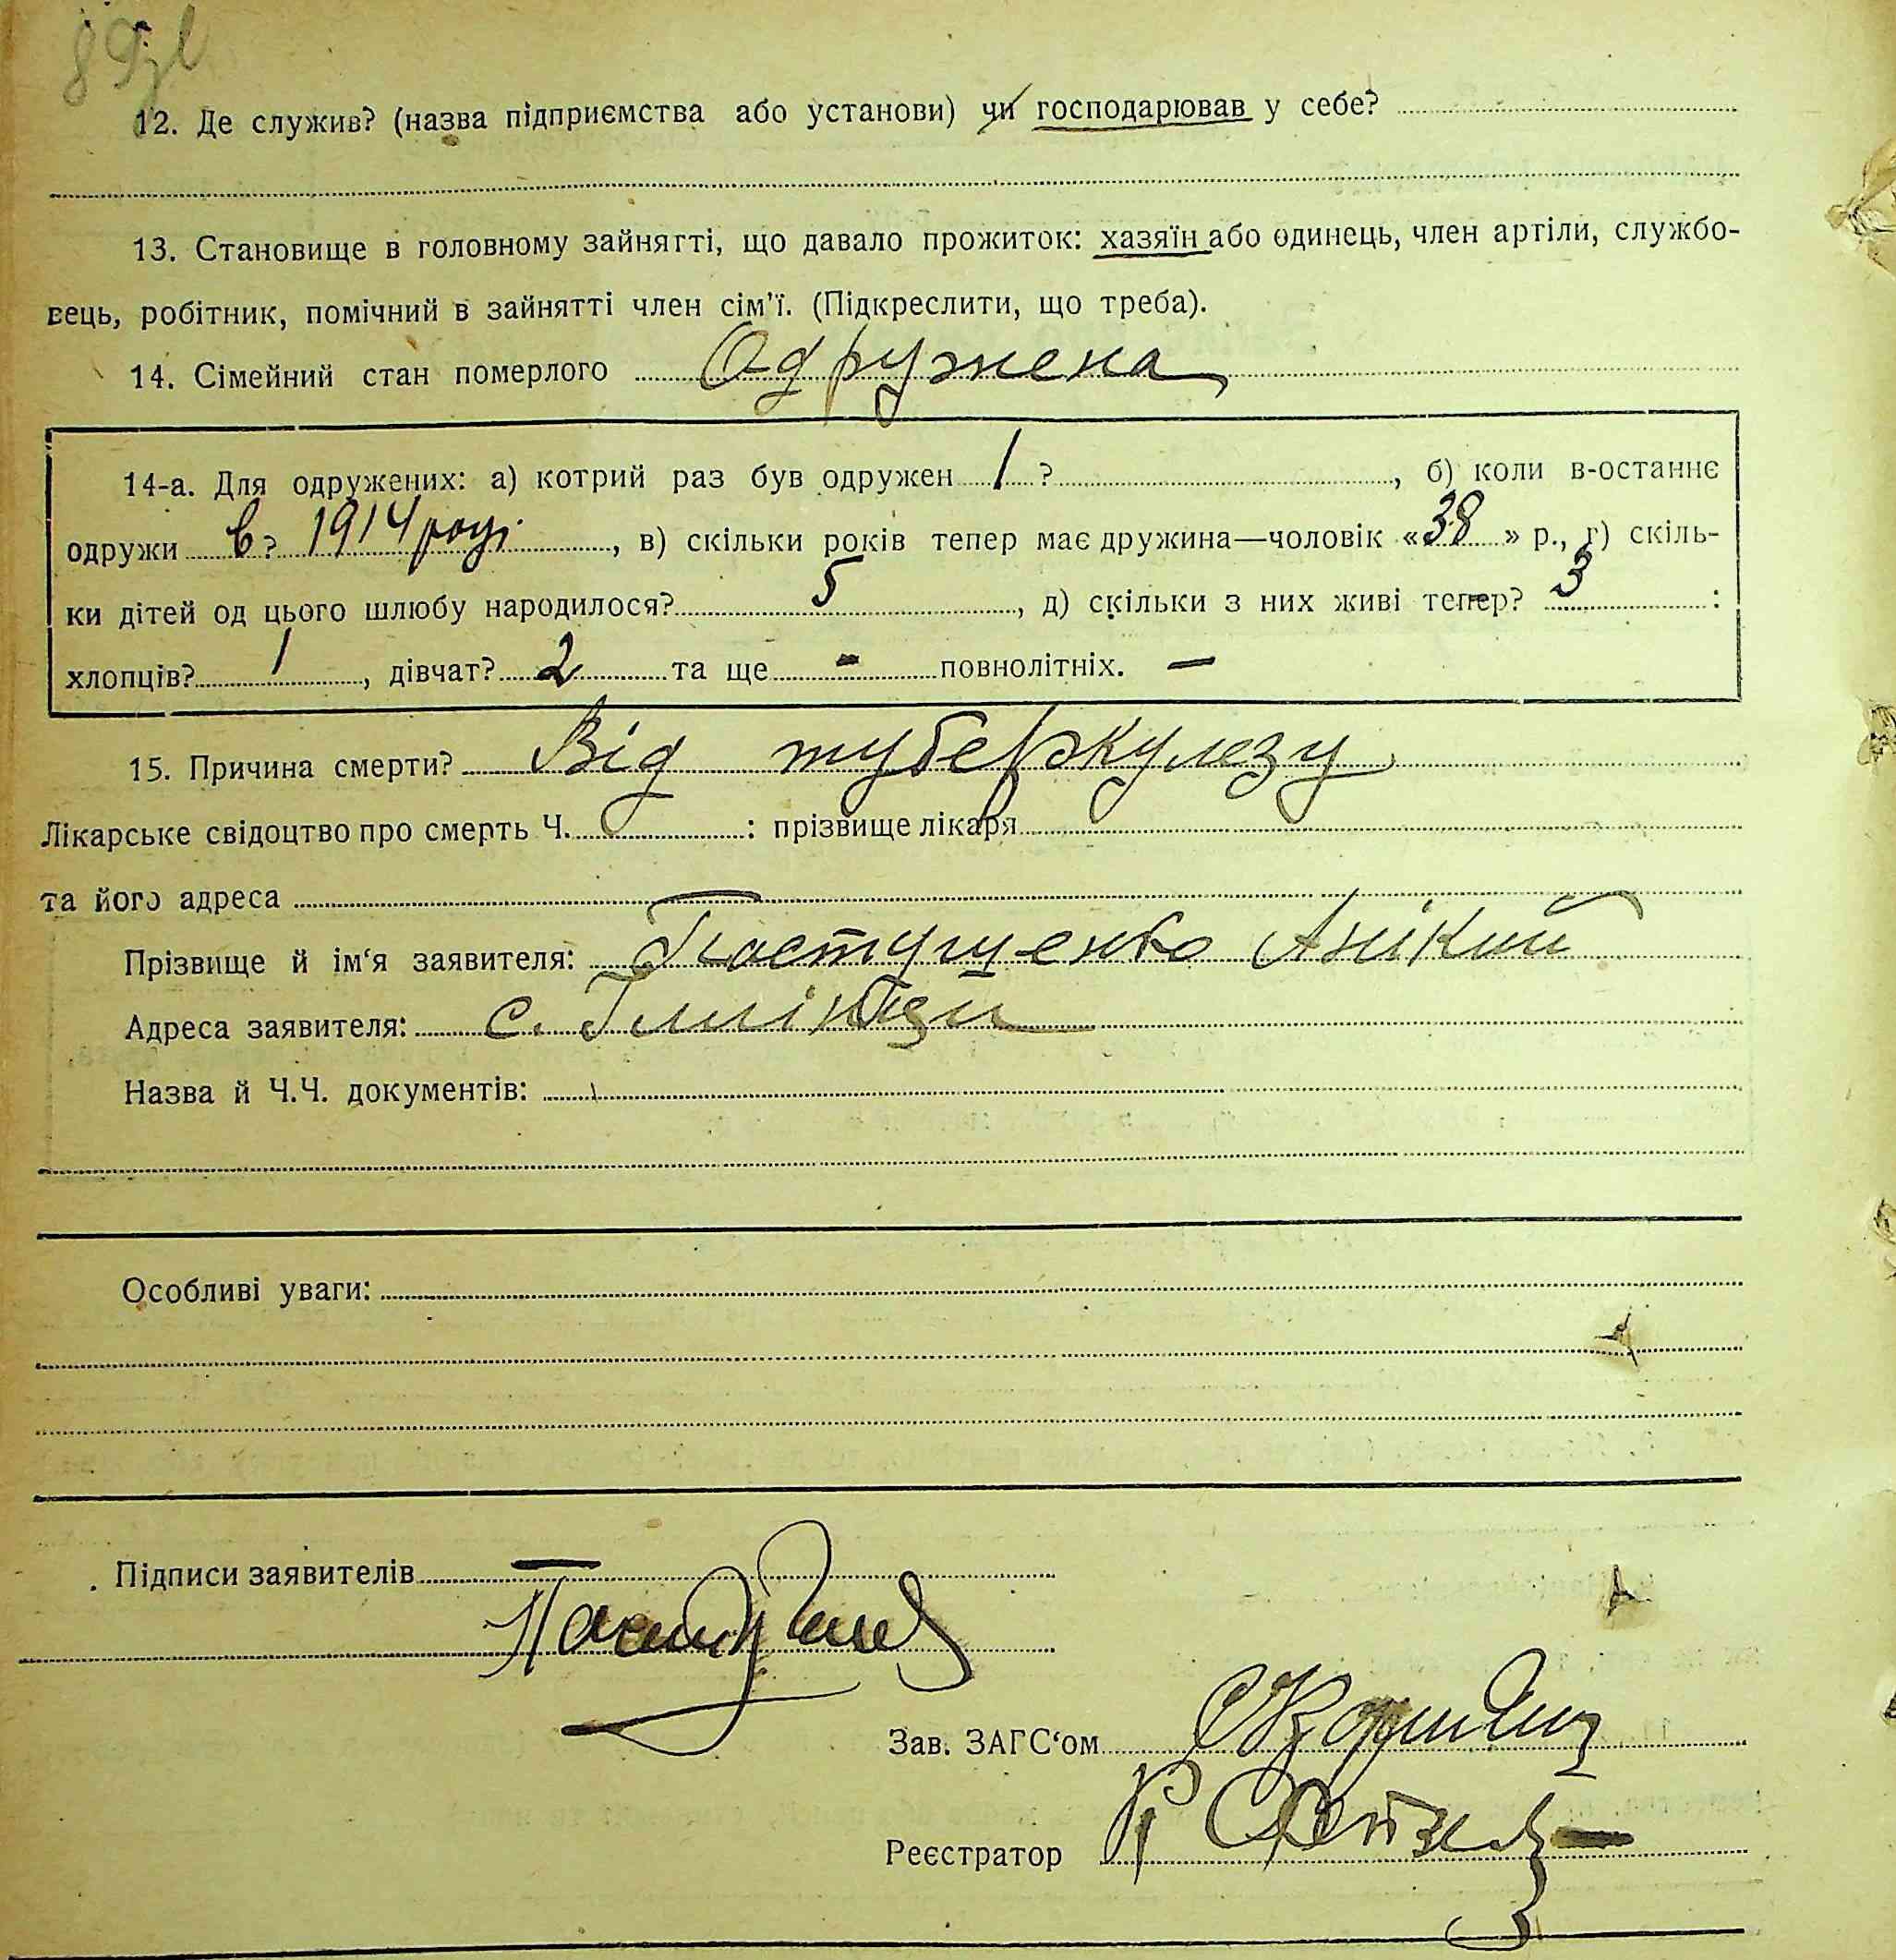 12. Де служив? (назва підприємства або установи) чи господарював у себе?
13. Становище в головному зайнятті, що давало прожиток: хазяїн або одинець, член артіли, службо-
вець, робітник, помічний в зайнятті член сім'ї. (Підкреслити, що треба).
14. Сімейний стан померлого Одружена
14-а. Для одружених: а) котрий раз був одружен 1 ? , б) коли в-останнє
одружи в ? 1914 році , в) скільки років тепер має дружина—чоловік «38» р., г) скіль-
ки дітей од цього шлюбу народилося? 5 , д) скільки з них живі тепер? 3 :
хлопців? 1 , дівчат? 2 та ще - повнолітніх. —
15. Причина смерти? Від туберкулезу
Лікарське свідоцтво про смерть Ч. : прізвище лікаря
та його адреса
Прізвище й ім'я заявителя: Пастущенко Анікий
Адреса заявителя: с. Іллінці
Назва й Ч.Ч. документів:
Особливі уваги:
Підписи заявителів
Зав. ЗАГС'ом
Реєстратор